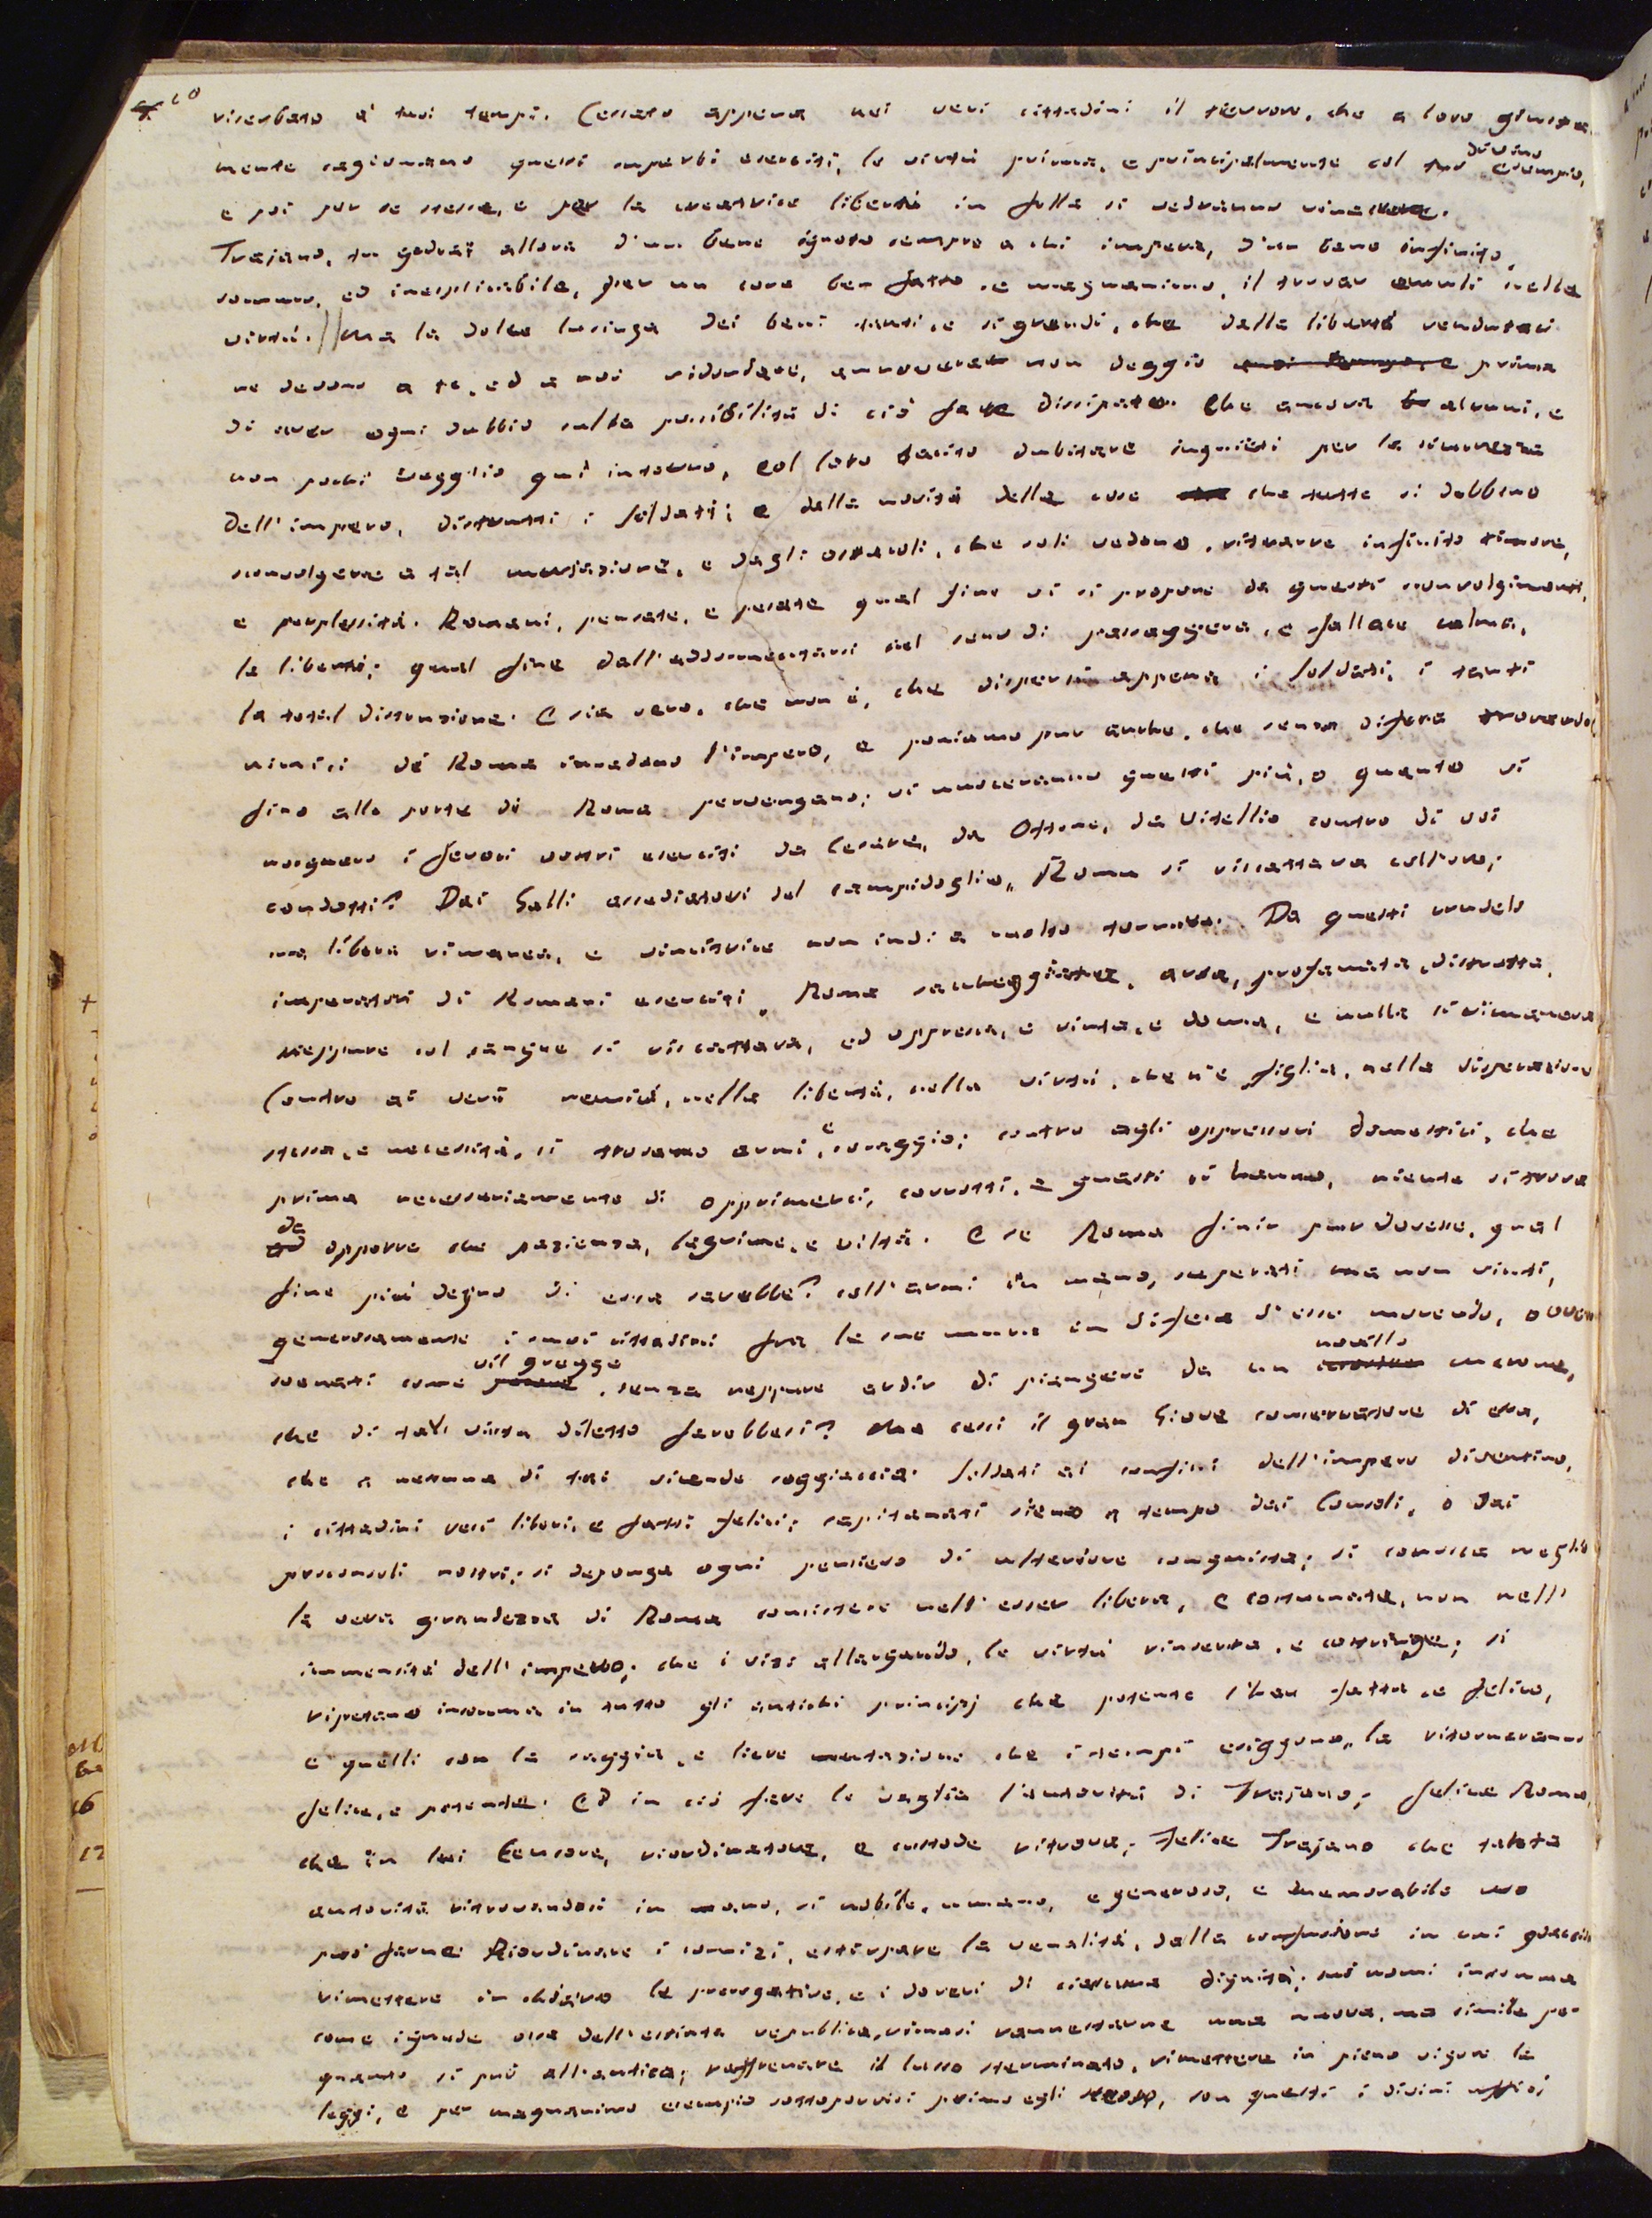 10
riserbato a' tuoi tempi. Cessato appena nei veri cittadini il terrore, che a loro giusta-
mente cagionano questi superbi eserciti, la virtù prima, e principalmente col tuo divino esempio,
e poi per se stessa, e per la creatrice libertà in folla si vedranno rinascere.
Trajano, tu godrai allora d'un bene ignoto sempre a chi impera, d'un bene infinito,
sommo, ed inesplicabile, per un core ben fatto, e magnanimo, il trovar emuli nella
virtù. // Ma la dolce lusinga dei beni tanti, e sì grandi, che dalla libertà rendutaci
ne devono a te, ed a noi ridondare, annoverar non deggio prima
di aver ogni dubbio sulla possibilità di ciò fare dissipato. Che ancora alcuni, e
non pochi veggio quì intorno, col loro tacito dubitare inquieti per la sicurezza
dell'impero, distrutti i soldati; e dalla novità delle cose che tutte si debbono
sconvolgere a tal mutazione, e dagli ostacoli, che soli vedono, ritrarre infinito timore,
e perplessità. Romani, pensate, e pesate qual fine vi si propone da questi sconvolgimenti,
la libertà; qual fine dall'addormentarvi nel seno di passaggera, e fallace calma,
la total distruzione. E sia vero, che non è, che dispersi appena i soldati, i tanti
nimici di Roma invadano l'impero, e poniamo pur anche, che senza difesa trovandol
fino alle porte di Roma pervengano; vi nuoceranno questi più, o quanto vi
nocquero i feroci vostri eserciti da Cesare, da Ottone, da Vitellio contro di voi
condotti? Dai Galli assediatori del campidoglio, Roma si riscattava coll'oro;
ma libera rimanea, e vincitrice non indi a molto tornava. Da questi crudeli
imperatori di Romani eserciti, Roma saccheggiata, arsa, profanata, distrutta,
neppure col sangue si riscattava, ed oppressa, e vinta, e doma, e nulla si rimaneva
Contro ai veri nemici, nella libertà, nella virtù, che n'è figlia, nella disperazione
stessa, e necessità, si trovano armi, e coraggio; contro agli oppressori domestici, che
prima necessariamente di opprimerci, corrotti, e guasti ci hanno, niente si trova
da opporre che pazienza, lagrime, e viltà. E se Roma finir pur dovesse, qual
fine più degno di essa sarebbe? coll'armi in mano, superati ma non vinti,
generosamente i suoi cittadini fra le sue mura in difesa d'esse morendo, ovver
svenati come vil gregge, senza neppure ardir di piangere da un novello Nerone,
che di tal vista diletto farebbesi? Ma cessi il gran Giove conservatore di essa,
che a nessuna di tai vicende soggiaccia. Soldati ai confini dell'impero diventino,
i cittadini resi liberi, e fatti felici; capitanati sieno a tempo dai Consoli, o dai
proconsoli nostri; si deponga ogni pensiero di ulteriore conquista; si conosca meglio
la vera grandezza di Roma consistere nell'esser libera, e costumata, non nell'
immensità dell'impero; che i vizi allargando, le virtù rinserra, e costringe; si
ripetano insomma in tutto gli antichi principj che potente l'han fatta, e felice,
e quelli con la saggia, e lieve mutazione che i tempi esiggono, la ritorneranno
felice, e potente. Ed in ciò fare si vaglia l'autorità di Trajano; felice Roma,
che in lui Censore, riordinatore, e custode ritrova; felice Trajano che tutta
autorità ritrovandosi in mano, sì nobile, umano, e generoso, e memorabile uso
può farne. Riordinare i comizi, estirpare la venalità, dalla confusione in cui
rimettere in chiaro le prerogative, e i doveri di ciascuna dignità; sui nomi insomma
come ignude ossa dell'estinta republica, rimasi rannestarne una nuova, ma simile per
quanto si può all'antica; raffrenare il lusso sterminato, rimettere in pieno vigore le
leggi, e per magnanimo esempio sottoporvisi primo egli stesso, son questi i divini uffici